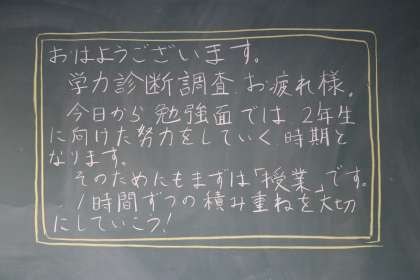 おはようございます。
学力診断調査 お疲れ様。
今日から 勉強面では、2年生
に向けた努力をしていく 時期と
なります。
そのためにもまずは「授業」です。
1時間ずつの積み重ねを大切
にしていこう！